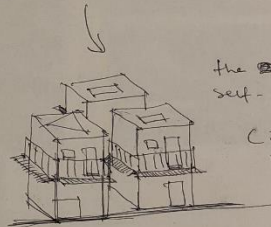 the
self-